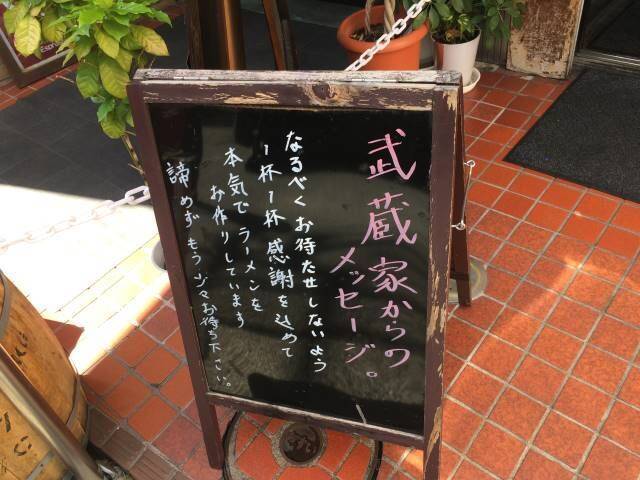 武蔵家からの
メッセージ。
なるべくお待たせしないよう
1杯1杯感謝を込めて
本気でラーメンを
お作りしています
諦めずもう少々お待ち下さい。